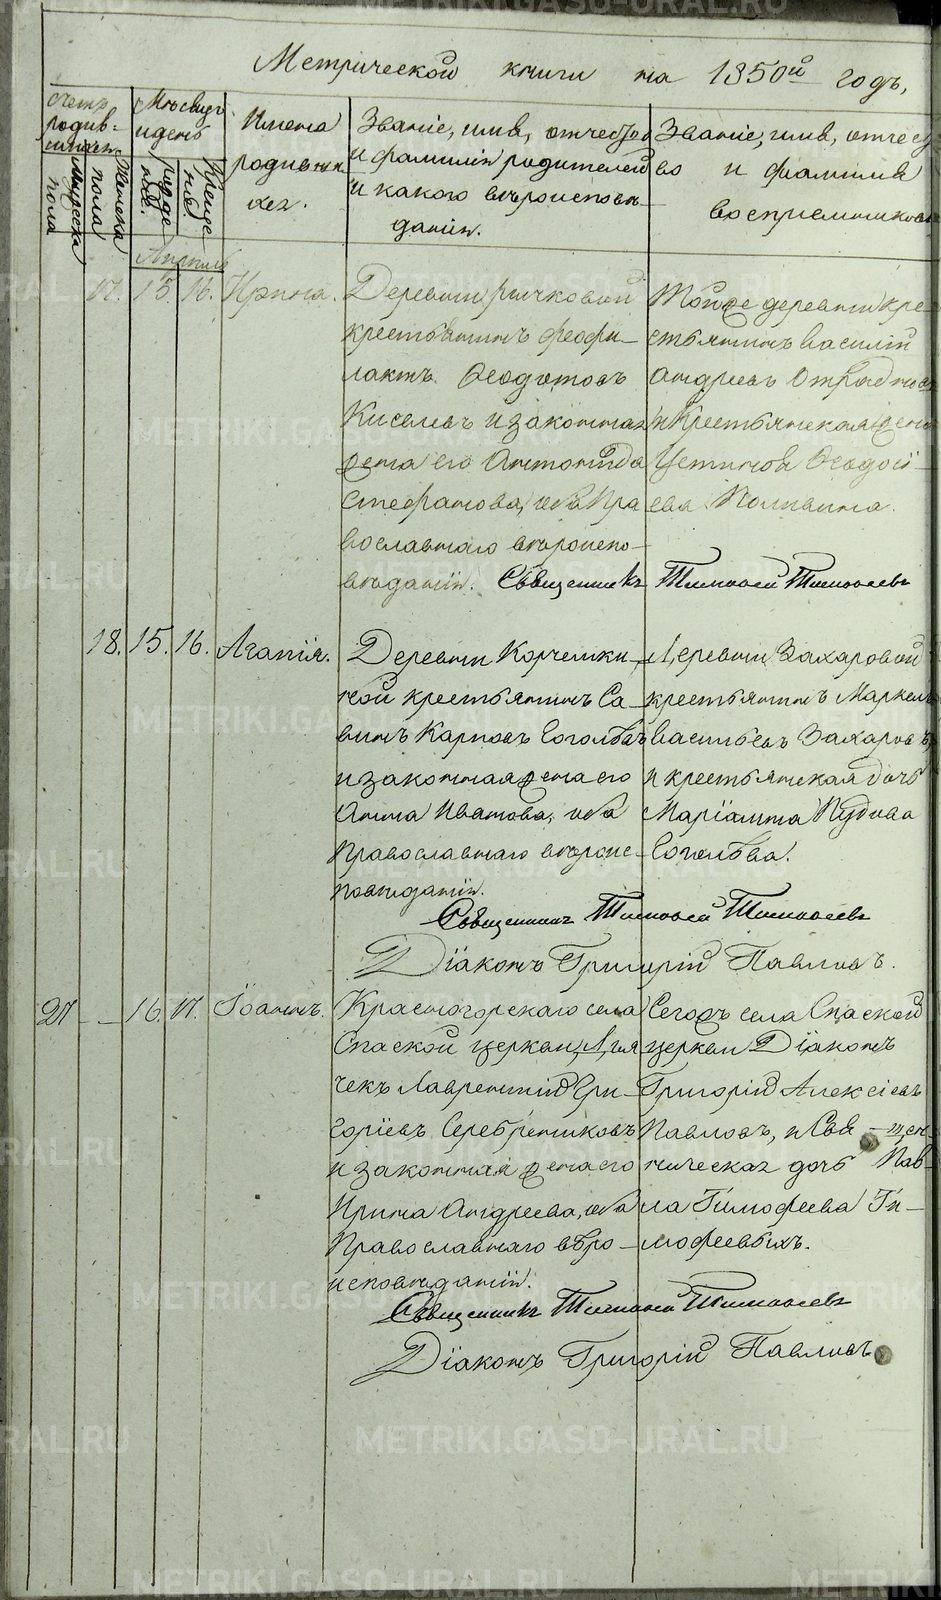 Метрической книги на 1850й годъ,
Счетъ родив-шихся.
Мужеска пола
Женска пола
Мѣсяцъ и день
рожде нiя.
Креще нiя
Имена родивших ся.
Званiе, имя, отчество
и фамилiи родителей
и какого вѣроисповѣ-
данiя.
Званiе, имя, отчест
во и фамилiя
воспрiемниковъ
Апрель
17. 15. 16. Ирина.
Деревни Рычковой
крестьянинъ Феофи-
лактъ Ѳеодотовъ
Киселевъ и законная
жена его Антонида
Стефанова, оба Пра
вославнаго вѣроиспо-
вѣданiя.
Тойже деревни кре
стьянинъ Василiй
Андреевъ
и Крестьянская жена
Устинья Ѳеодосi-
ева
Священникъ Тимофей Тимофеевъ
18. 15. 16. Агапiя.
Деревни Корчемки-
ной крестьянинъ Са-
винъ Карповъ Соголбовъ
и законная жена его
Анна Иванова, оба
Православнаго вѣроис-
повѣданiя.
Деревни Захаровой
крестьянинъ Маркелъ
Васильевъ Захаровъ
и крестьянская дочь
Марiамна Пудова
Священникъ Тимофей Тимофеевъ
Дiаконъ Григорiй Павловъ.
27 - - 16. 17. Iоаннъ.
Красногорскаго села
Спаской церкви, Дья
чекъ Лаврентiй Гри-
горiевъ Серебрениковъ
и законная жена его
Ирина Андреева, оба
Православнаго вѣро-
исповѣданiя.
Сегожъ села Спаской
церкви Дiаконъ
Григорiй Алексiевъ
Павловъ, и Свя-щен-
ническая дочь Пав-
ла Тимофеева Ти-
мофеевыхъ.
Священникъ Тимофей Тимофеевъ
Дiаконъ Григорiй Павловъ
METRIKI.GASO-URAL.RU